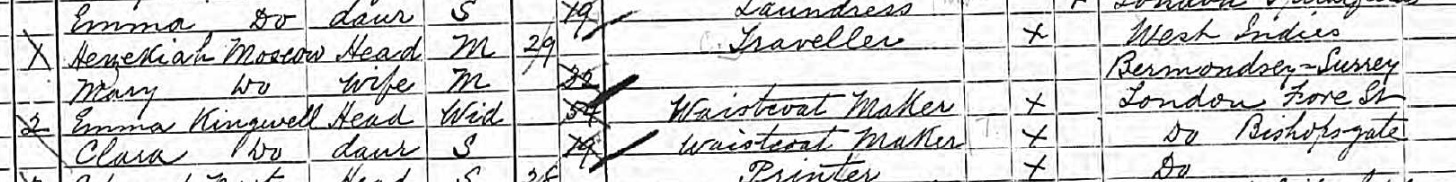 Emma Do daur S 19 Laundress London
X Hezekiah Moscow Head M 29 Traveller X West Indies
Mary Do Wife M 22 Bermondsey-Surrey
2 Emma Kingwell Head Wid 54 Waistcoat Maker X London Fore St
Clara Do daur S 19 Waistcoat Maker X Do Bishopsgate
Head S 28 Printer X Do